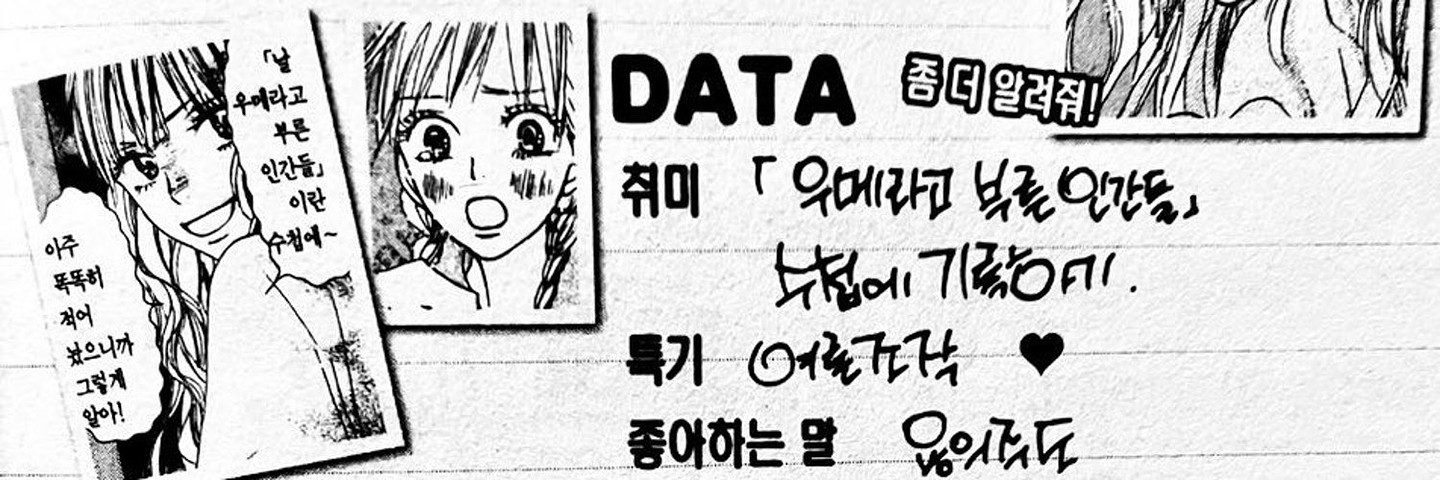 「날
우메라고
부른
인간들」
이란
수첩에~
아주
똑똑히
적어
놨으니까
그렇게
알아!
DATA
좀 더 알려줘!
취미 「우메라고 부른 인간들」
수첩에 기록하기.
특기 여론조작 ♥
좋아하는 말